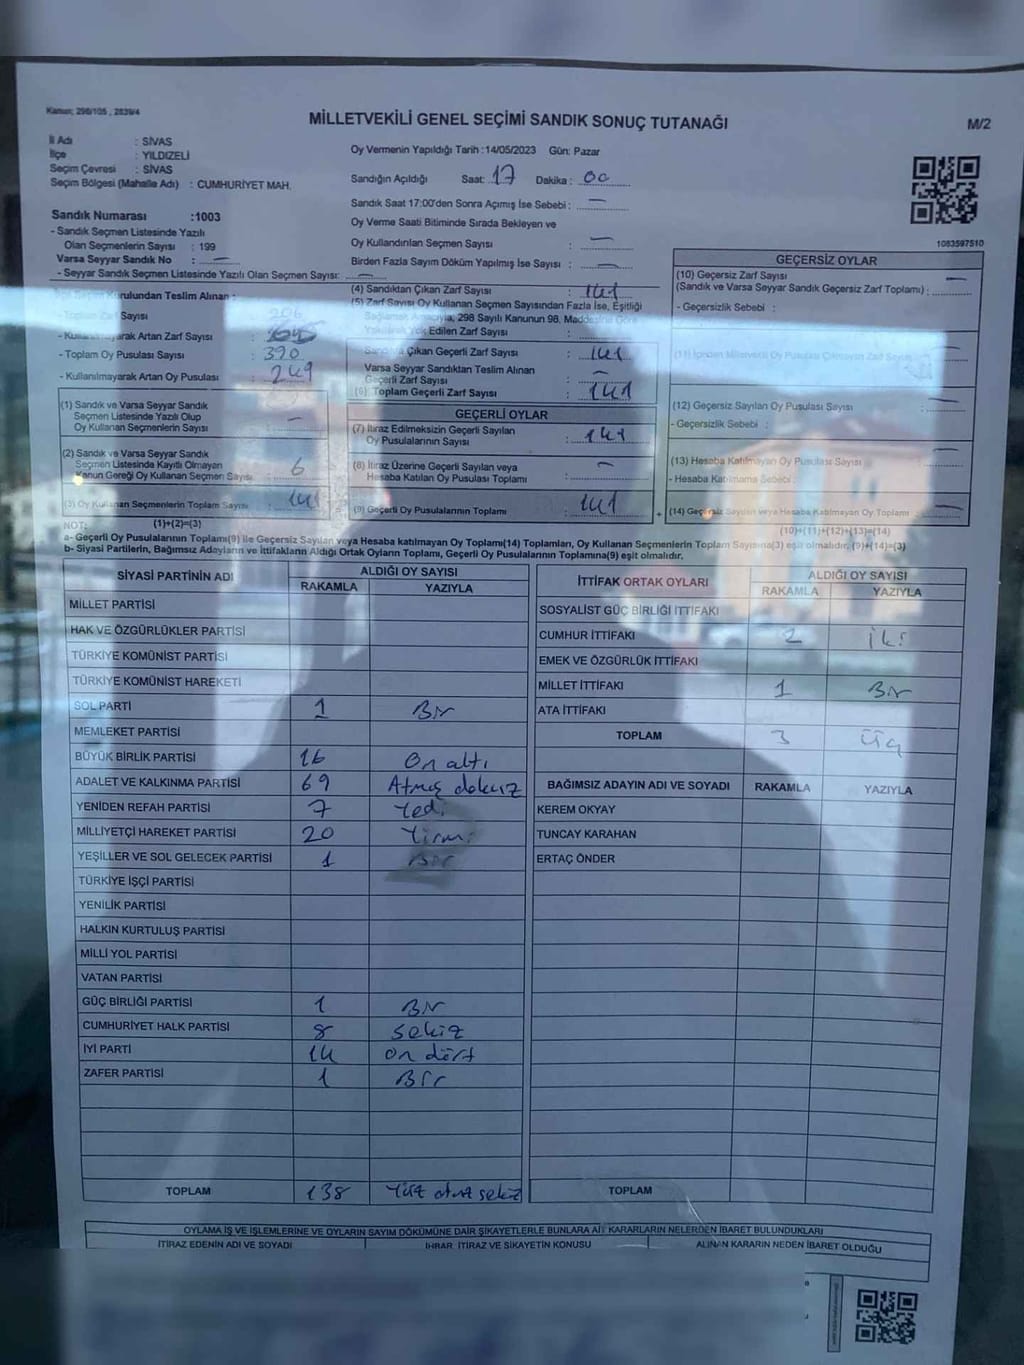 Kanun; 298/105 , 2839/4
MİLLETVEKİLİ GENEL SEÇİMİ SANDIK SONUÇ TUTANAĞI
M/2
İl Adı : SİVAS
İlçe : YILDIZELİ
Seçim Çevresi : SİVAS
Seçim Bölgesi (Mahalle Adı) : CUMHURİYET MAH.
Oy Vermenin Yapıldığı Tarih :14/05/2023 Gün: Pazar
Sandığın Açıldığı Saat: 17 Dakika : 00
Sandık Saat 17:00'den Sonra Açımış İse Sebebi : —
Oy Verme Saati Bitiminde Sırada Bekleyen ve
Oy Kullandırılan Seçmen Sayısı : —
Birden Fazla Sayım Döküm Yapılmış İse Sayısı : —
Sandık Numarası :1003
- Sandık Seçmen Listesinde Yazılı
Olan Seçmenlerin Sayısı : 199
Varsa Seyyar Sandık No : —
- Seyyar Sandık Seçmen Listesinde Yazılı Olan Seçmen Sayısı: —
1083597510
Kurulundan Teslim Alınan :
- Toplam Zarf Sayısı : 206
- Kullanılmayarak Artan Zarf Sayısı :
- Toplam Oy Pusulası Sayısı : 390
- Kullanılmayarak Artan Oy Pusulası : 249
(1) Sandık ve Varsa Seyyar Sandık
Seçmen Listesinde Yazılı Olup
Oy Kullanan Seçmenlerin Sayısı : —
(2) Sandık ve Varsa Seyyar Sandık
Seçmen Listesinde Kayıtlı Olmayan
Kanun Gereği Oy Kullanan Seçmen Sayısı : 6
(3) Oy Kullanan Seçmenlerin Toplam Sayısı : 141
(4) Sandıktan Çıkan Zarf Sayısı : 141
(5) Zarf Sayısı Oy Kullanan Seçmen Sayısından Fazla İse, Eşitliği
Sağlamak Amacıyla; 298 Sayılı Kanunun 98. Maddesine Göre
Yakılarak Yok Edilen Zarf Sayısı :
Sandıktan Çıkan Geçerli Zarf Sayısı : 141
Varsa Seyyar Sandıktan Teslim Alınan
Geçerli Zarf Sayısı : —
(6) Toplam Geçerli Zarf Sayısı : 141
GEÇERLİ OYLAR
(7) İtiraz Edilmeksizin Geçerli Sayılan
Oy Pusulalarının Sayısı : 141
(8) İtiraz Üzerine Geçerli Sayılan veya
Hesaba Katılan Oy Pusulası Toplamı : —
(9) Geçerli Oy Pusulalarının Toplamı : 141
GEÇERSİZ OYLAR
(10) Geçersiz Zarf Sayısı
(Sandık ve Varsa Seyyar Sandık Geçersiz Zarf Toplamı) : —
- Geçersizlik Sebebi :
(11) İçinden Milletvekili Oy Pusulası Çıkmayan Zarf Sayısı
(12) Geçersiz Sayılan Oy Pusulası Sayısı : —
- Geçersizlik Sebebi :
(13) Hesaba Katılmayan Oy Pusulası Sayısı : —
- Hesaba Katılmama Sebebi :
+ (14) Geçersiz Sayılan veya Hesaba Katılmayan Oy Toplamı : —
NOT: (1)+(2)=(3)
(10)+(11)+(12)+(13)=(14)
a- Geçerli Oy Pusulası Toplamı(9) ile Geçersiz Sayılan veya Hesaba katılmayan Oy Toplamı(14) Toplamları, Oy Kullanan Seçmenlerin Toplam Sayısına(3) eşit olmalıdır. (9)+(14)=(3)
b- Siyasi Partilerin, Bağımsız Adayların ve İttifakların Aldığı Ortak Oyların Toplamı, Geçerli Oy Pusulalarının Toplamına(9) eşit olmalıdır.
SİYASİ PARTİNİN ADI ALDIĞI OY SAYISI
RAKAMLA YAZIYLA
MİLLET PARTİSİ
HAK VE ÖZGÜRLÜKLER PARTİSİ
TÜRKİYE KOMÜNİST PARTİSİ
TÜRKİYE KOMÜNİST HAREKETİ
SOL PARTİ 1 Bir
MEMLEKET PARTİSİ
BÜYÜK BİRLİK PARTİSİ 16 On altı
ADALET VE KALKINMA PARTİSİ 69 Atmış dokuz
YENİDEN REFAH PARTİSİ 7 Yedi
MİLLİYETÇİ HAREKET PARTİSİ 20 Yirmi
YEŞİLLER VE SOL GELECEK PARTİSİ 1 Bir
TÜRKİYE İŞÇİ PARTİSİ
YENİLİK PARTİSİ
HALKIN KURTULUŞ PARTİSİ
MİLLİ YOL PARTİSİ
VATAN PARTİSİ
GÜÇ BİRLİĞİ PARTİSİ 1 Bir
CUMHURİYET HALK PARTİSİ 8 sekiz
İYİ PARTİ 14 on dört
ZAFER PARTİSİ 1 Bir
TOPLAM 138 Yüz otuz sekiz
İTTİFAK ORTAK OYLARI ALDIĞI OY SAYISI
RAKAMLA YAZIYLA
SOSYALİST GÜÇ BİRLİĞİ İTTİFAKI
CUMHUR İTTİFAKI 2 İki
EMEK VE ÖZGÜRLÜK İTTİFAKI
MİLLET İTTİFAKI 1 Bir
ATA İTTİFAKI
TOPLAM 3 Üç
BAĞIMSIZ ADAYIN ADI VE SOYADI RAKAMLA YAZIYLA
KEREM OKYAY
TUNCAY KARAHAN
ERTAÇ ÖNDER
TOPLAM
OYLAMA İŞ VE İŞLEMLERİNE VE OYLARIN SAYIM DÖKÜMÜNE DAİR ŞİKAYETLERLE BUNLARA AİT KARARLARIN NELERDEN İBARET BULUNDUKLARI
İTİRAZ EDENİN ADI VE SOYADI İHBAR, İTİRAZ VE ŞİKAYETİN KONUSU ALINAN KARARIN NEDEN İBARET OLDUĞU